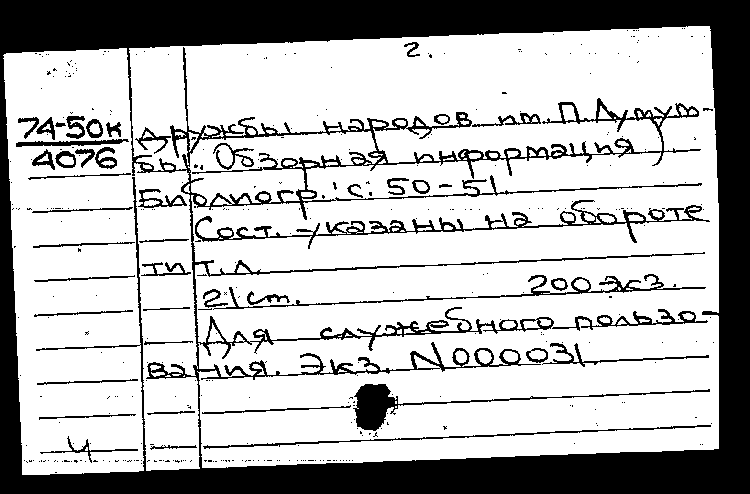 2.
74-50к
4076
Дружбы народов им. П. Лумум-
бы. Обзорная информация).
Библиогр.: с. 50-51.
Сост. указаны на обороте
тит. л.
21 см. 200 экз.
Для служебного пользо-
вания. Экз. N000031.
Ч